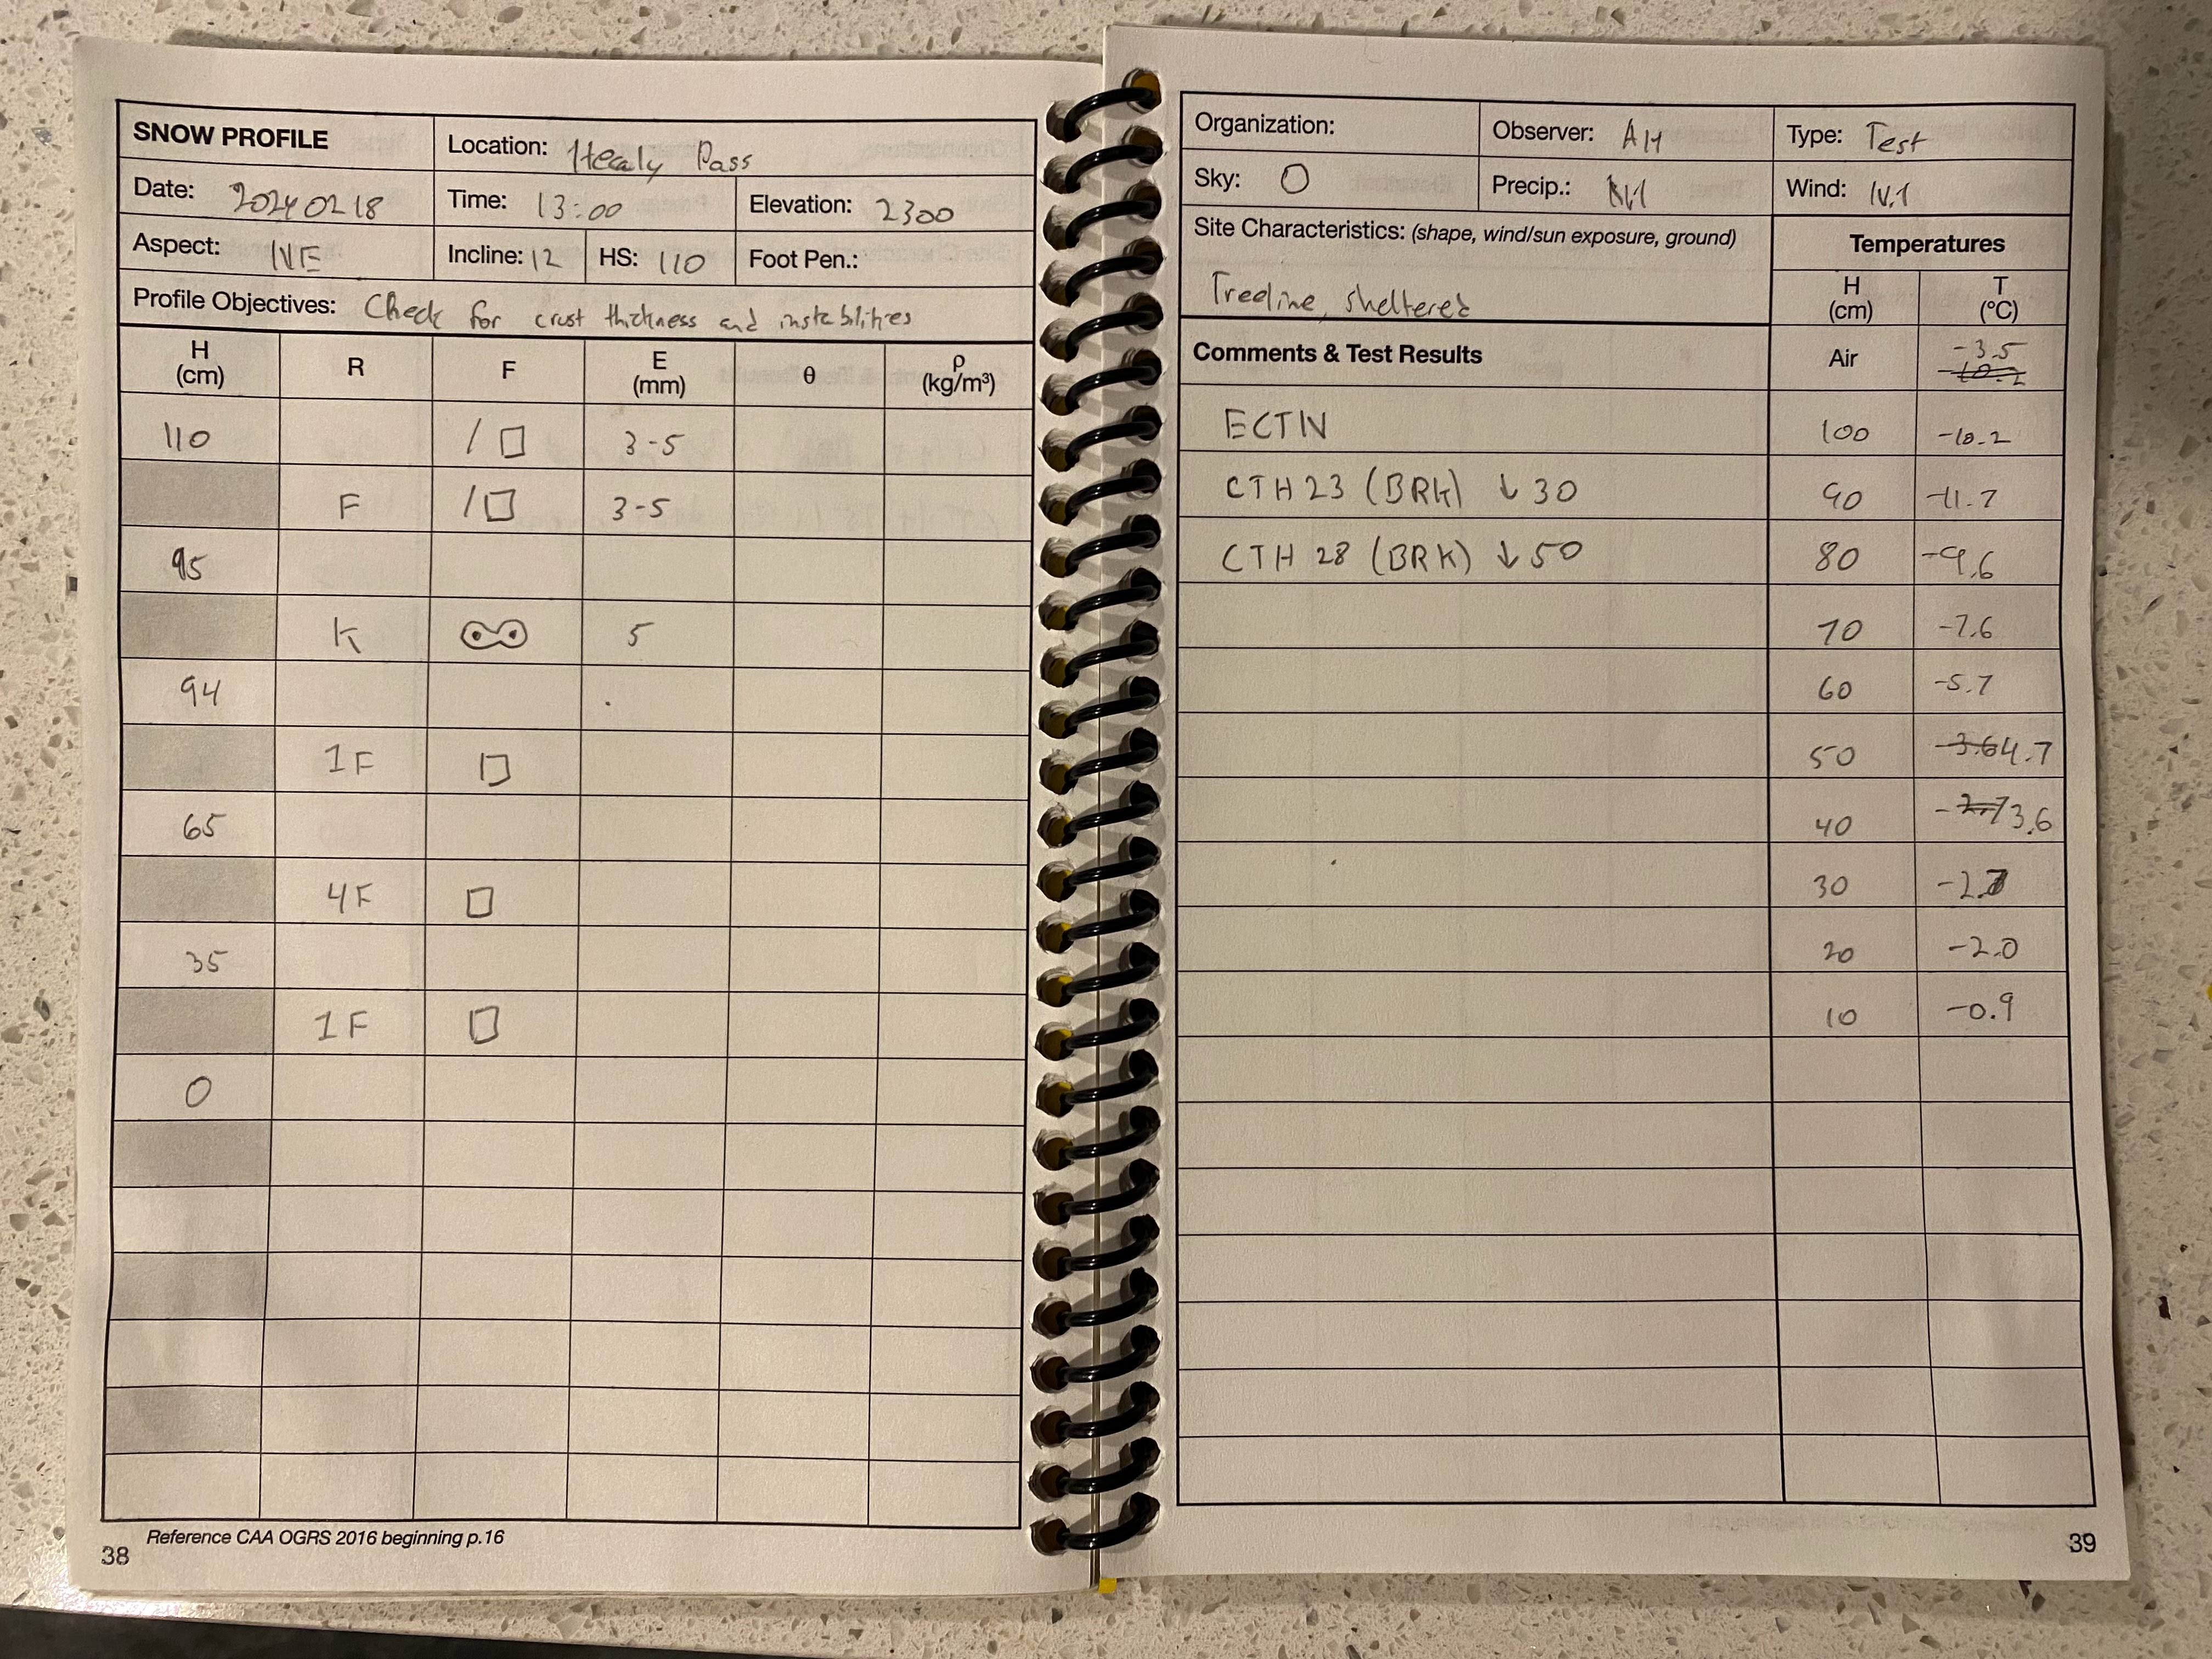 SNOW PROFILE
Location: Healy Pass
Date: 20240218
Time: 13:00
Elevation: 2300
Aspect: NE
Incline: 12
HS: 110
Foot Pen.:
Profile Objectives: Check for crust thickness and instabilities
H (cm) R F E (mm) θ ρ (kg/m³)
110 / □ 3-5
F / □ 3-5
95
K 5
94
1F □
65
4F □
35
1F □
0
Reference CAA OGRS 2016 beginning p.16
38
Organization:
Observer: AH
Type: Test
Sky: O
Precip.: Nil
Wind:
Site Characteristics: (shape, wind/sun exposure, ground)
Treeline, sheltered
Temperatures
H (cm) T (°C)
Comments & Test Results
Air -3.5 -10.2
ECTN 100 -10.2
CTH 23 (BRK) ↓ 30 90 -11.7
CTH 28 (BRK) ↓ 50 80 -9.6
70 -7.6
60 -5.7
50 -3.6 4.7
40 -2.7 3.6
30 -2.7
20 -2.0
10 -0.9
39